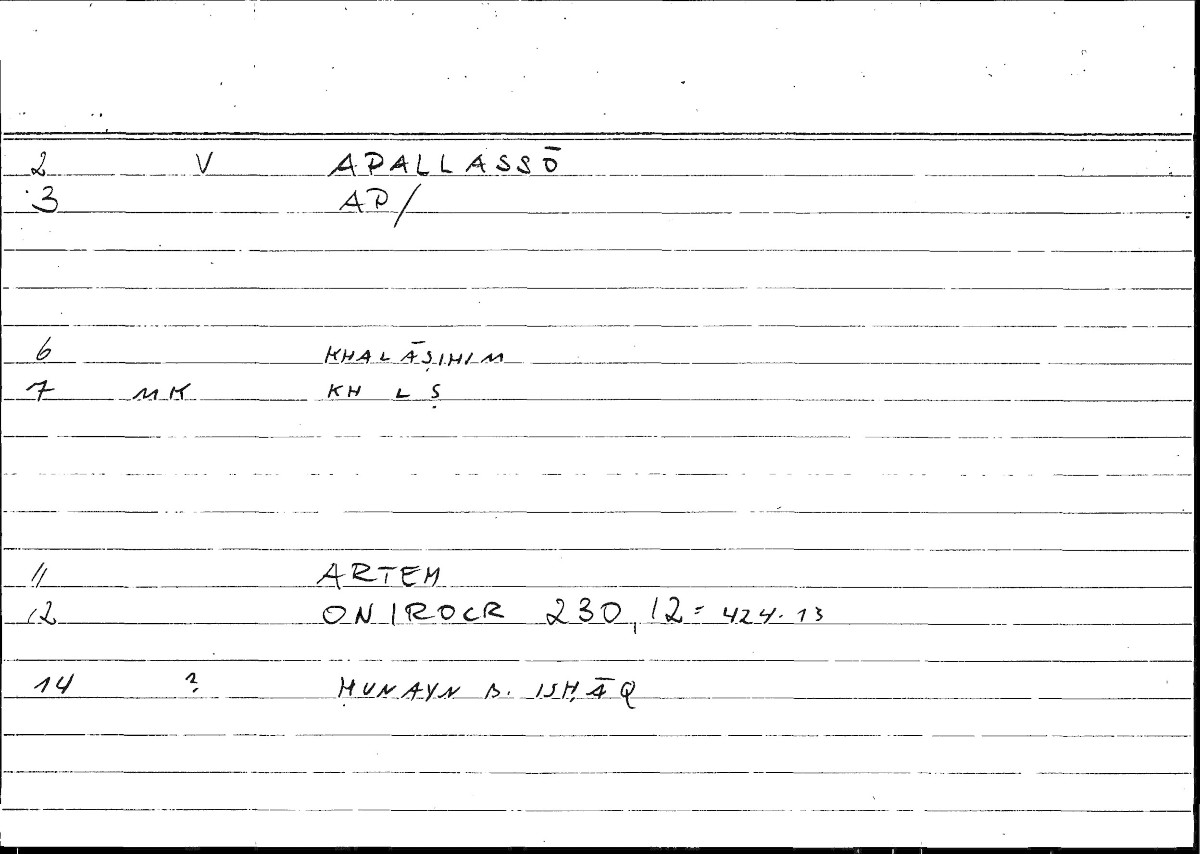 2 V APALLASSŌ
3 AP/
6 KHALĀṢIHIM
7 MK KH L Ṣ
11 ARTEM
12 ONIROCR 230,12=424.13
14 ? ḤUNAYN B. ISḤĀQ